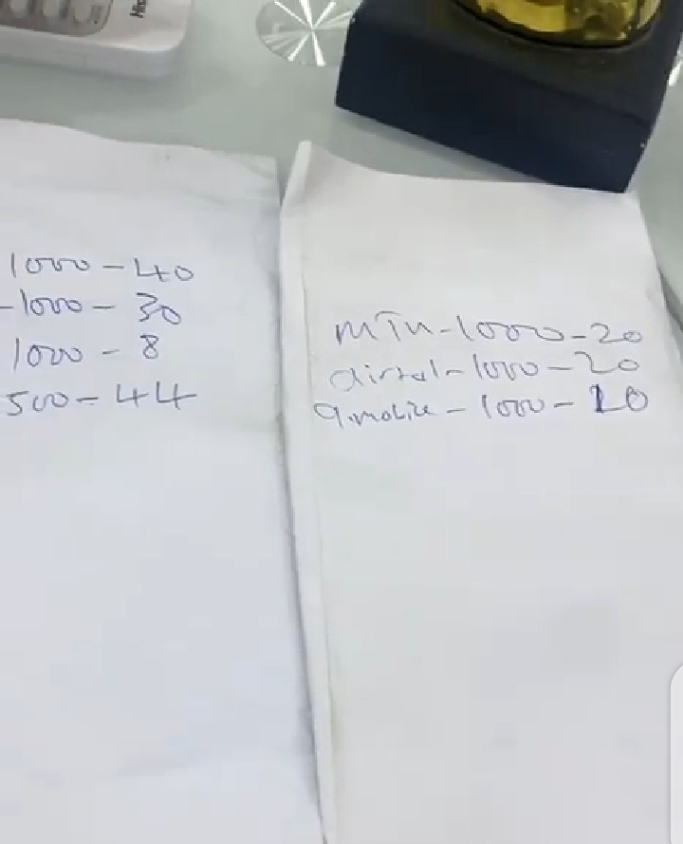 1000 - 40
- 1000 - 30
1000 - 8
500 - 44
MTN - 1000 - 20
airtel - 1000 - 20
9.mobile - 1000 - 10